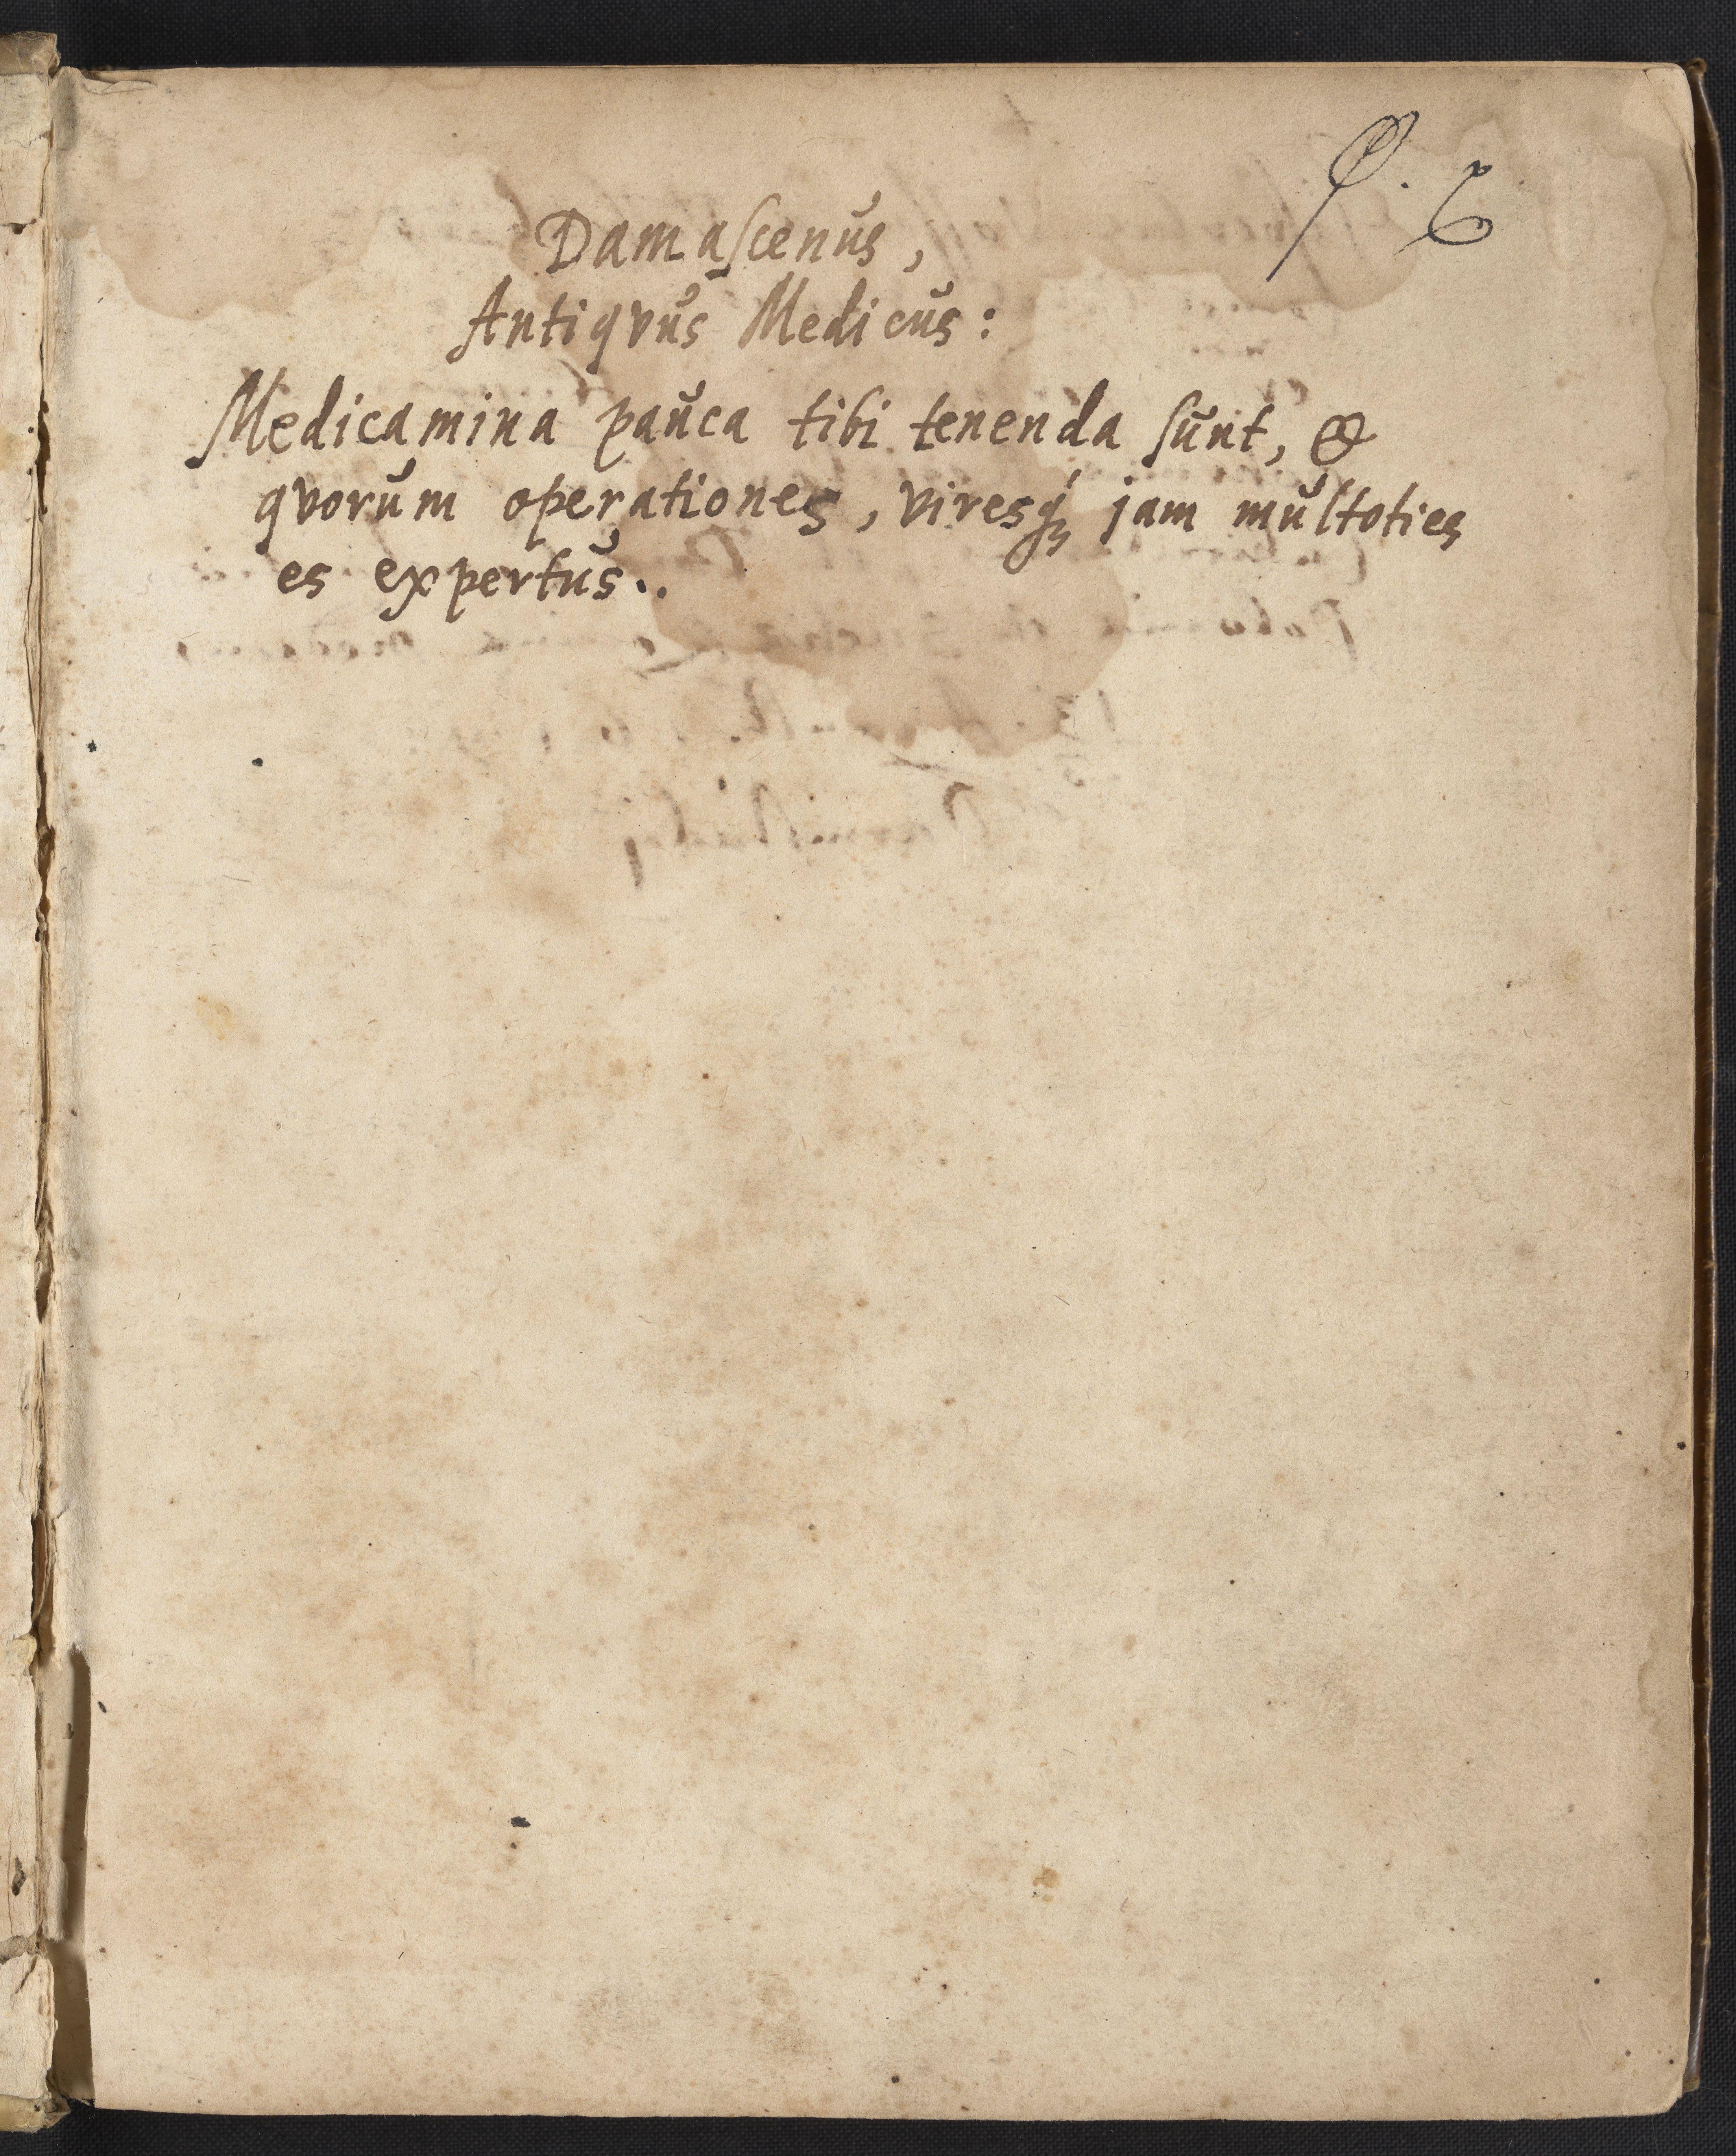 Damaſcenus,
Antiqvus Medicus:
Medicamina pauca tibi tenenda ſunt, &
qvorum operationes, viresq́ꝫ jam multoties
es expertus..